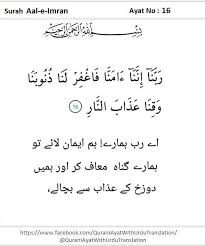 Surah Aal-e-Imran Ayat No : 16
بِسْمِ اللَّهِ الرَّحْمَٰنِ الرَّحِيمِ
رَبَّنَا إِنَّنَا ءَامَنَّا فَاغْفِرْ لَنَا ذُنُوبَنَا
وَقِنَا عَذَابَ النَّارِ ١٦
اے رب ہمارے! ہم ایمان لائے تو
ہمارے گناہ معاف کر اور ہمیں
دوزخ کے عذاب سے بچالے،
https://www.facebook.com/QuranIAyatWithUrduTranslation/
@QuranIAyatWithUrduTranslation